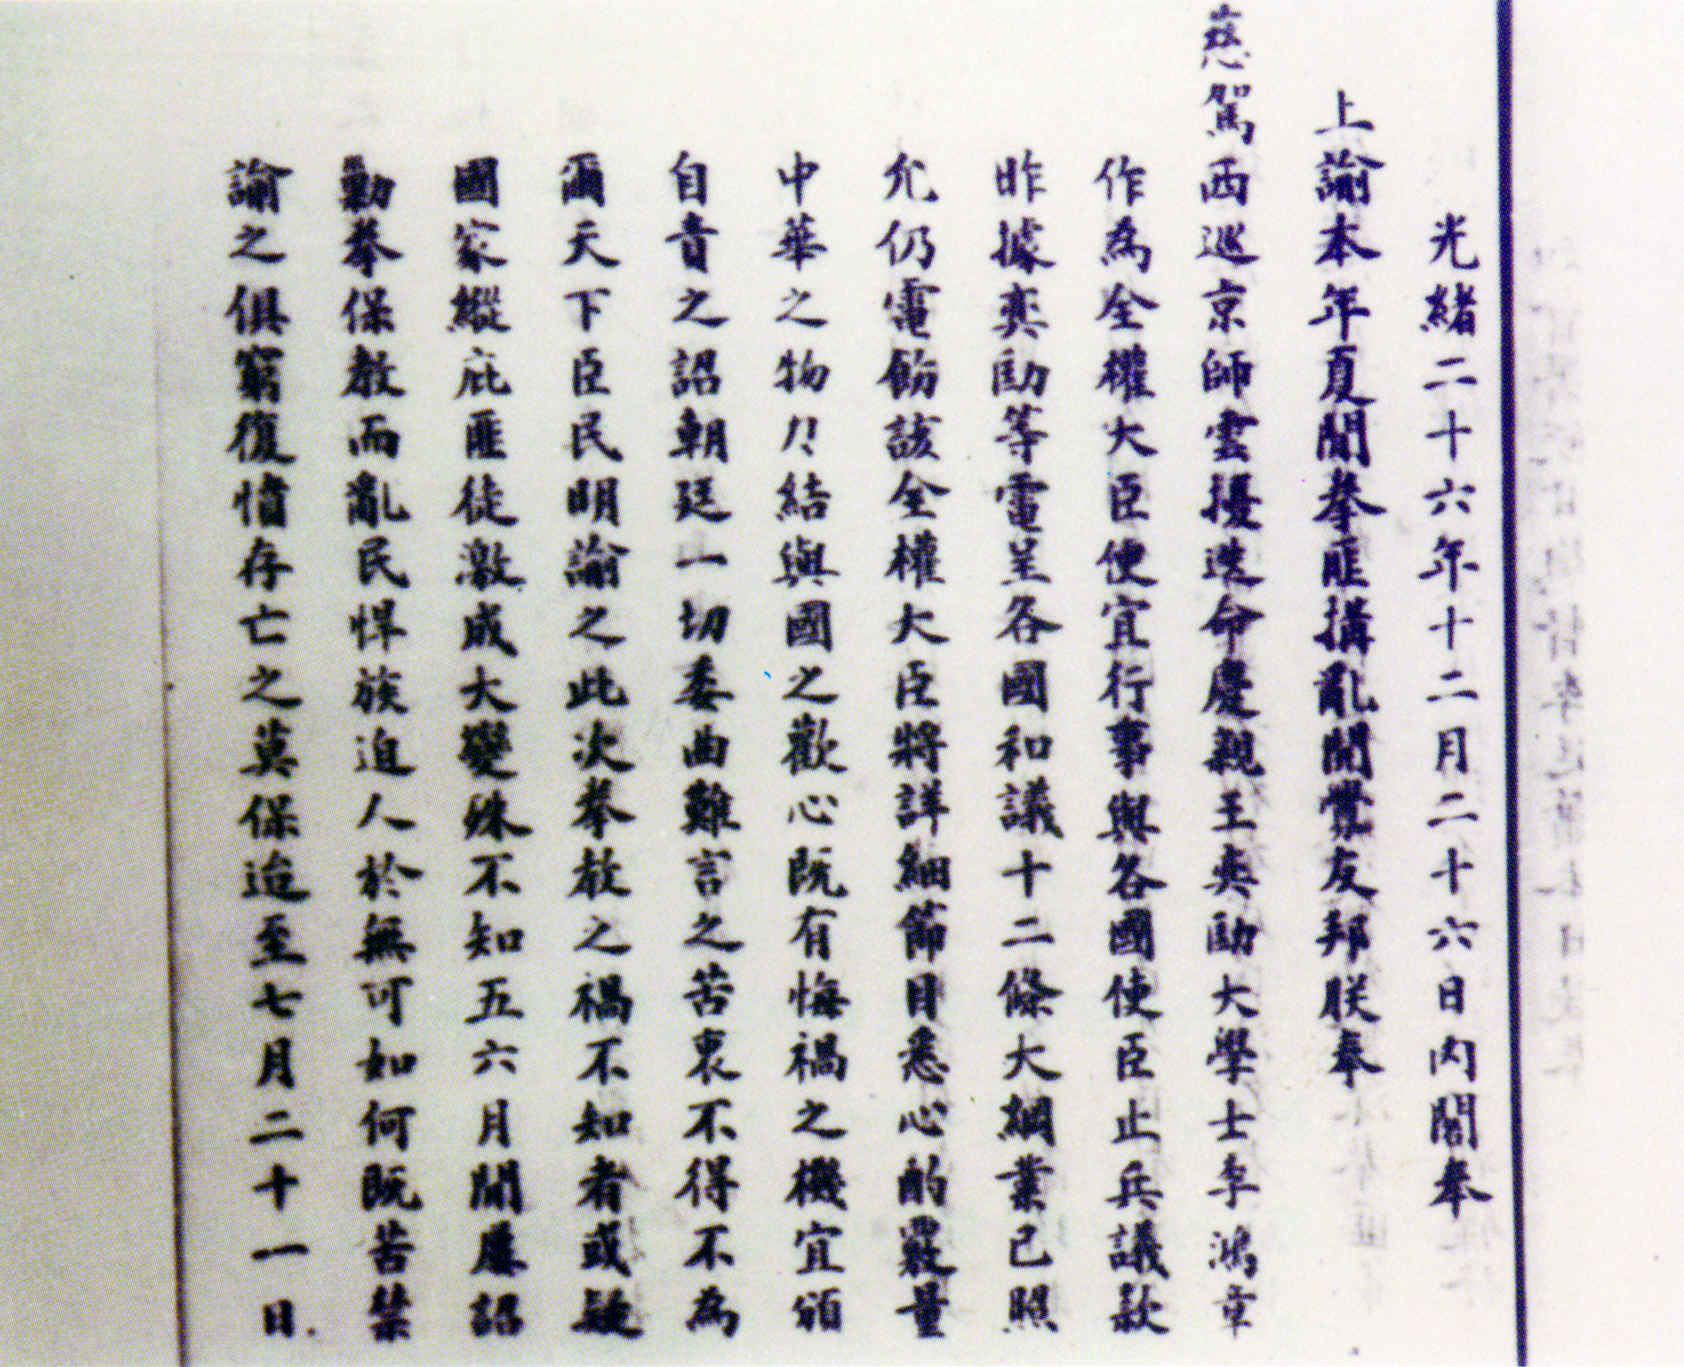 光緒二十六年十二月二十六日內閣奉
上諭本年夏間拳匪搆亂開釁友邦朕奉
慈駕西巡京師雲擾迭命慶親王奕劻大學士李鴻章
作為全權大臣便宜行事與各國使臣止兵議款
昨據奕劻等電呈各國和議十二條大綱業已照
允仍電飭該全權大臣將詳細節目悉心酌覈量
中華之物力結與國之歡心既有悔禍之機宜頒
自責之詔朝廷一切委曲難言之苦衷不得不為
爾天下臣民明諭之此次拳教之禍不知者或疑
國家縱庇匪徒激成大變殊不知五六月間屢詔
勦拳保教而亂民悍族迫人於無可如何既苦禁
諭之俱窮復憤存亡之莫保迨至七月二十一日